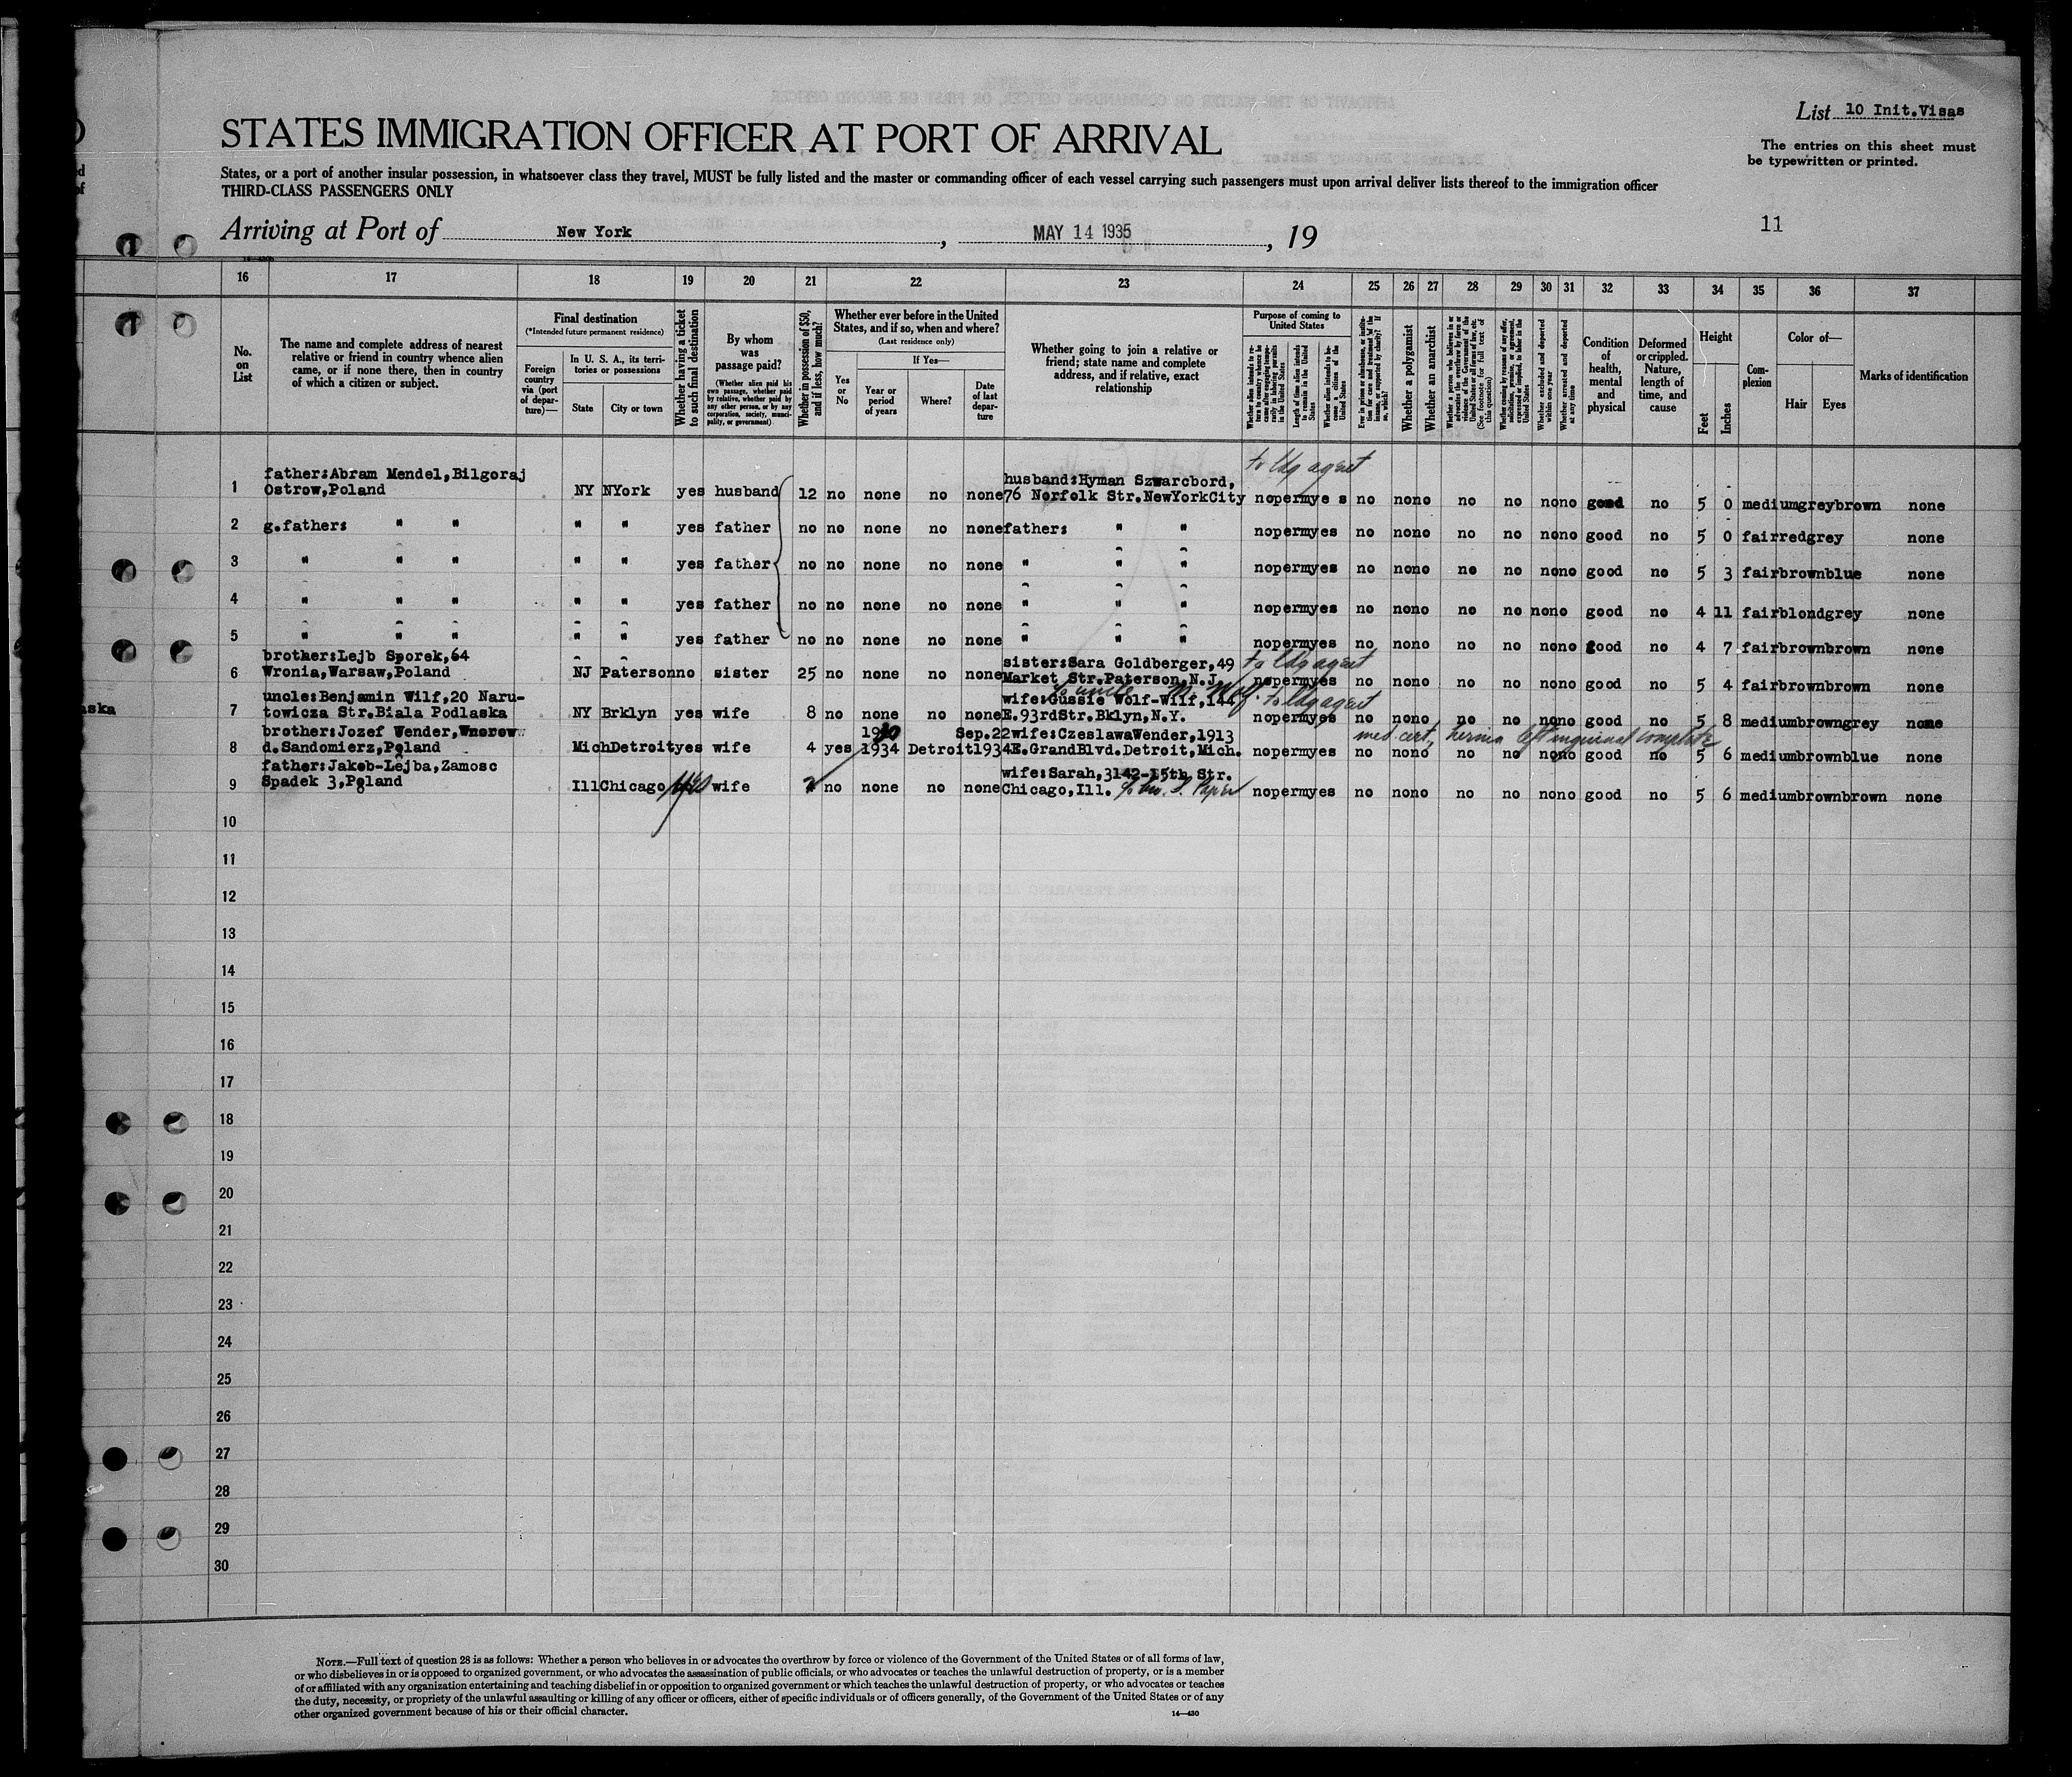 List 10 Init.Visas
STATES IMMIGRATION OFFICER AT PORT OF ARRIVAL
The entries on this sheet must
be typewritten or printed.
States, or a port of another insular possession, in whatsoever class they travel, MUST be fully listed and the master or commanding officer of each vessel carrying such passengers must upon arrival deliver lists thereof to the immigration officer
THIRD-CLASS PASSENGERS ONLY
11
Arriving at Port of New York, MAY 14 1935, 19
16 17 18 19 20 21 22 23 24 25 26 27 28 29 30 31 32 33 34 35 36 37
No. on List
The name and complete address of nearest relative or friend in country whence alien came, or if none there, then in country of which a citizen or subject.
Final destination
(*Intended future permanent residence)
Foreign country via (port of departure)—
In U. S. A., its territories or possessions
State
City or town
Whether having a ticket to such final destination
By whom was passage paid?
(Whether alien paid his own passage, whether paid by relative, whether paid by any other person, or by any corporation, society, municipality, or government)
Whether in possession of $50, and if less, how much?
Whether ever before in the United States, and if so, when and where?
(Last residence only)
Yes or No
If Yes—
Year or period of years
Where?
Date of last departure
Whether going to join a relative or friend; state name and complete address, and if relative, exact relationship
Purpose of coming to United States
Length of time alien intends to remain in the United States
Whether alien intends to become a citizen of the United States
Whether a polygamist
Whether an anarchist
Whether excluded and deported within one year
Whether arrested and deported at any time
Condition of health, mental and physical
Deformed or crippled. Nature, length of time, and cause
Height
Feet
Inches
Complexion
Color of—
Hair
Eyes
Marks of identification
to ldg agent
1 father:Abram Mendel,Bilgoraj
Ostrow,Poland NY NYork yes husband 12 no none no none husband:Hyman Szwarcbord,
76 Norfolk Str.NewYorkCity no perm ye s no no no no no no no good no 5 0 medium grey brown none
2 g.father: " " " " yes father no no none no none father: " " no perm yes no no no no no no no good no 5 0 fair red grey none
3 " " " " " yes father no no none no none " " " no perm yes no no no no no no no good no 5 3 fair brown blue none
4 " " " " " yes father no no none no none " " " no perm yes no no no no no no no good no 4 11 fair blond grey none
5 " " " " " yes father no no none no none " " " no perm yes no no no no no no no good no 4 7 fair brown brown none
6 brother:Lejb Sporek,64
Wronia,Warsaw,Poland NJ Paterson no sister 25 no none no none sister:Sara Goldberger,49
Market Str.Paterson,N.J. to ldg agent no perm yes no no no no no no no good no 5 4 fair brown brown none
aska
7 uncle:Benjamin Wilf,20 Naru-
towicza Str.Biala Podlaska NY Brklyn yes wife 8 no none no none wife:Gussie Wolf-Wilf,144
E.93rdStr.Bklyn,N.Y. to ldg agent no perm yes no no no no no no no good no 5 8 medium brown grey none
8 brother:Jozef Wender,Wnorow
d.Sandomierz,Poland Mich Detroit yes wife 4 yes 1934 Detroit Sep.22 1934 wife:CzeslawaWender,1913
E.GrandBlvd.Detroit,Mich. no perm yes no no no no no no no good no 5 6 medium brown blue none
med. cert. hernia left inguinal complete
9 father:Jakob-Lejba,Zamosc
Spadek 3,Poland Ill Chicago yes wife no none no none wife:Sarah,3142-15th Str.
Chicago,Ill. no perm yes no no no no no no no good no 5 6 medium brown brown none
10
11
12
13
14
15
16
17
18
19
20
21
22
23
24
25
26
27
28
29
30
NOTE.—Full text of question 28 is as follows: Whether a person who believes in or advocates the overthrow by force or violence of the Government of the United States or of all forms of law,
or who disbelieves in or is opposed to organized government, or who advocates the assassination of public officials, or who advocates or teaches the unlawful destruction of property, or is a member
of or affiliated with any organization entertaining and teaching disbelief in or opposition to organized government or which teaches the unlawful destruction of property, or who advocates or teaches
the duty, necessity, or propriety of the unlawful assaulting or killing of any officer or officers, either of specific individuals or of officers generally, of the Government of the United States or of any
other organized government because of his or their official character.
14—430